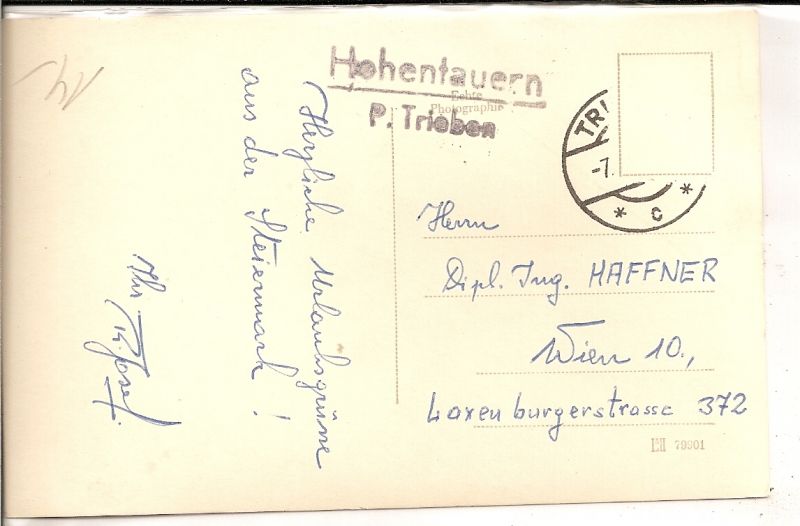 Herzliche Urlaubsgrüsse
aus der Steiermark!
Ihr
Hohentauern
P. Trieben
Echte
Photographie
TRI
-7.
* C *
Herrn
Dipl. Ing. HAFFNER
Wien 10.,
Laxenburgerstrasse 372
79901